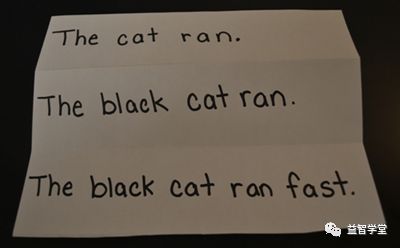 The cat ran.
The black cat ran.
The black cat ran fast.
益智学堂